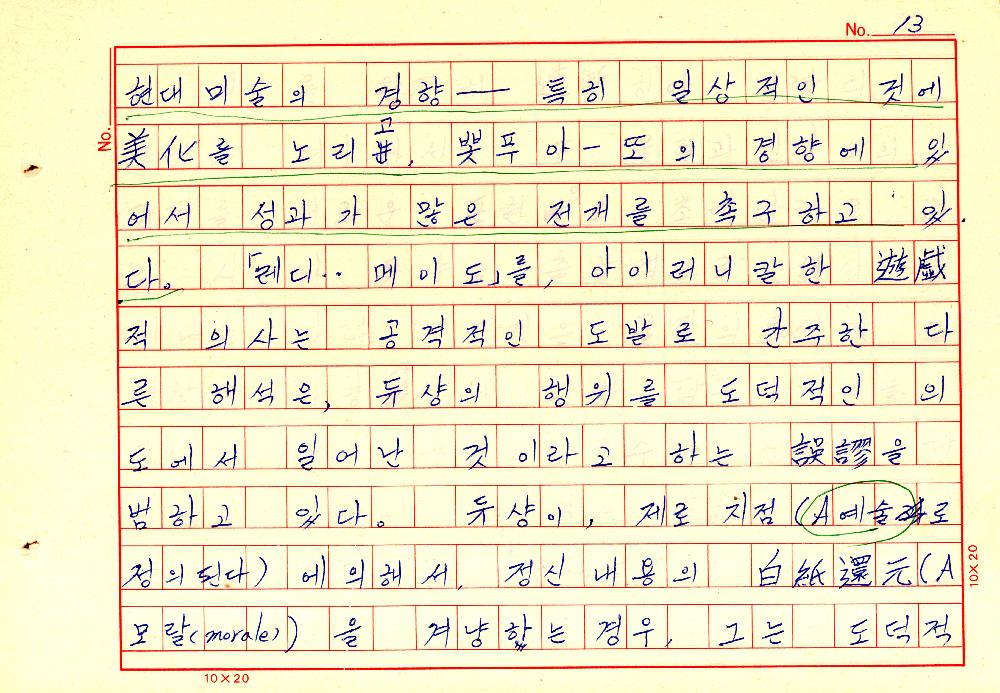 No. 13
현대 미술의 경향 — 특히 일상적인 것에
No.
美化를 노리고, 뽗푸 아-또의 경향에 있
어서 성과가 많은 전개를 촉구하고 있
다。 「레디·· 메이도」를, 아이러니칼한 遊戱
적 의사는 공격적인 도발로 간주한 다
른 해석은, 듀샹의 행위를 도덕적인 의
도에서 일어난 것이라고 하는 誤謬을
범하고 있다。 듀샹이, 제로 지점 (A예술로
정의된다) 에 의해서, 정신 내용의 白紙還元 (A
모랄(morale)) 을 겨냥하는 경우, 그는 도덕적
10×20
10×20